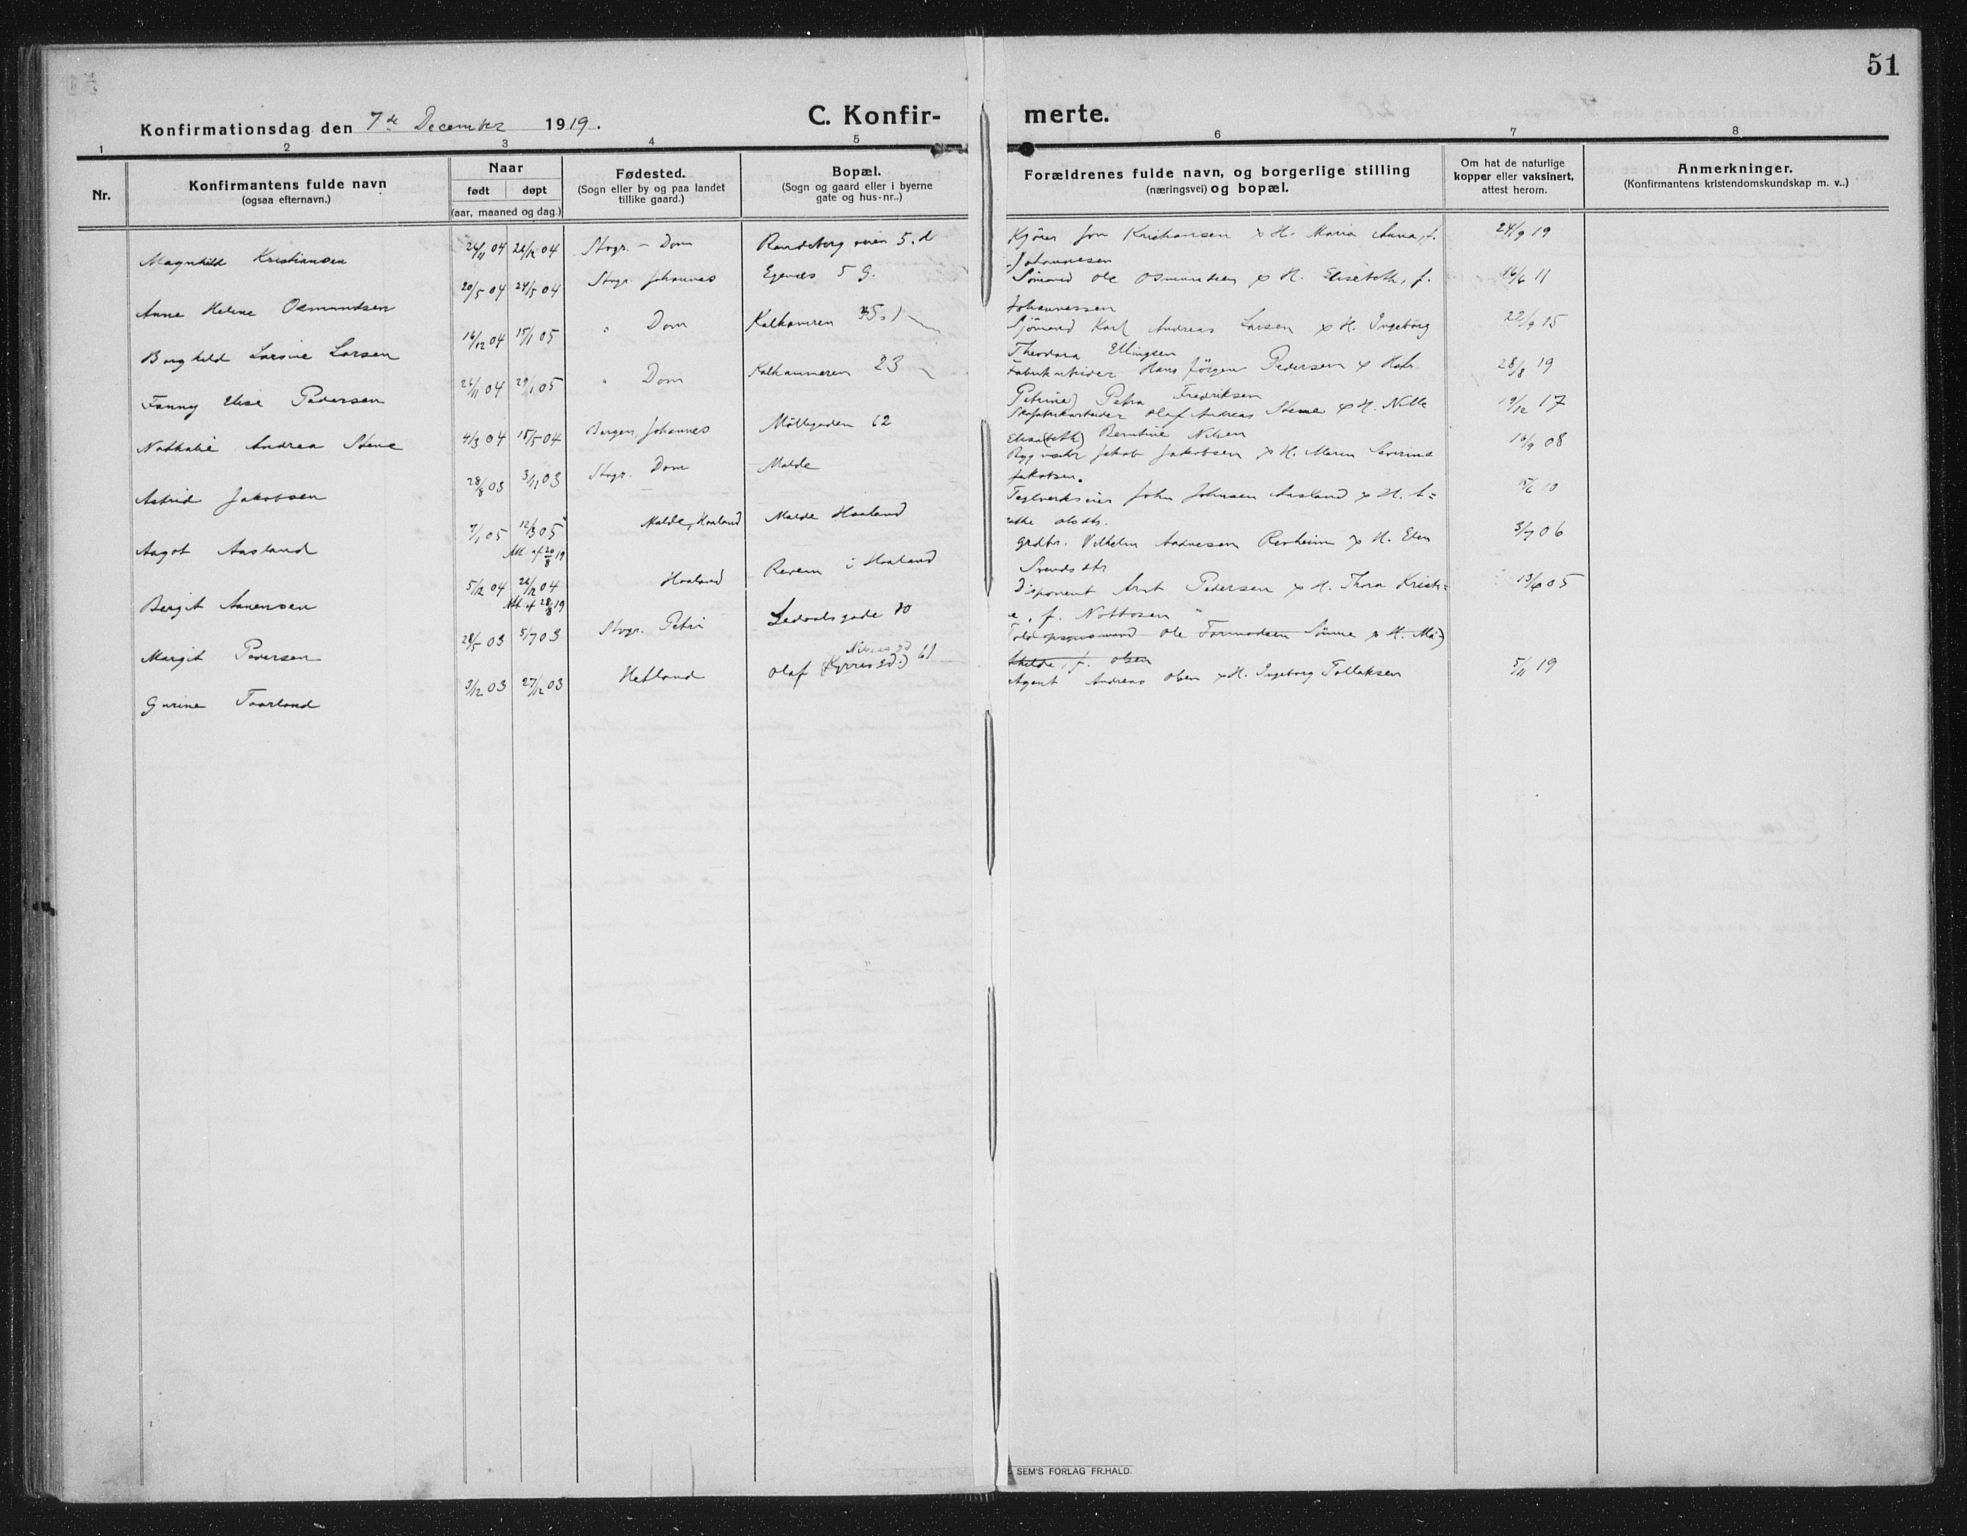 51
Konfirmationsdag den 7de December 1919.
C. Konfirmerte.
1 2 3 4 5 6 7 8
Nr.
Konfirmantens fulde navn
(ogsaa efternavn.)
Naar
født døpt
(aar, maaned og dag.)
Fødested.
(Sogn eller by og paa landet
tillike gaard.)
Bopæl.
(Sogn og gaard eller i byerne
gate og hus-nr..)
Forældrenes fulde navn, og borgerlige stilling
(næringsvei) og bopæl.
Om hat de naturlige
kopper eller vaksinert,
attest herom.
Anmerkninger.
(Konfirmantens kristendomskundskap m. v..)
Magnhild Kristiansen 26/11 04 26/12 04 Stvgr. - Dom Randeberg veien 5. d Kjører Jon Kristiansen x H. Maria Anna, f. 24/9 19
Johannesen
Anne Helene Osmundsen 20/5 04 24/5 04 Stvgr. Johannes Egenæs 5 g. Sømand Ole Osmundsen x H. Elisabeth, f. 16/6 11
Johannessen
Borghild Lovise Larsen 16/12 04 15/1 05 " Dom Kalhammeren Sjømand Karl Andreas Larsen x H. Ingeborg 22/9 15
Theodora Ellingsen
Fanny Elise Pedersen 26/11 04 29/1 05 " Dom Kalhammeren 23 Fabrikarbeider Hans Jørgen Pedersen x 28/8 19
Petrine) Petra Fredriksen
Nathalie Andrea Stene 4/3 04 15/5 04 Bergen, Johannes Møllegaden 62 Skofabrikarbeider Olaf Andreas Stene x H. Nille 19/12 17
Elisa(beth) Berntine Nilsen
Astrid Jakobsen 28/8 03 3/11 03 Stvgr. Dom Malde Jakob Jakobsen x H. Maren Severine 10/9 08
Jakobsen.
Aagot Aasland 7/1 05 12/3 05 Malde, Haaland Malde Haaland Teglverkseier John Johnsen Aasland x H. 10
Att. af 20/8 19
Olsdtr.
Bergit Anensen 5/12 04 26/12 04 Haaland Revem i Haaland Grdbr. Vilhelm Andresen Revheim x H. Elen 3/7 06
Att. af 28/8 19
Svendsdtr
Margit Pedersen 28/5 03 5/7 03 Stvgr. Petri Ledaalsgade 10 Disponent Arnt Pedersen x H. Thora Krist- 05
e, f. Nottosen
Toldopsynsmand Ole Tormodsen Sømme x H. Ma-
thilde, f. Olsen
Nilsens gd
Gurine Taarland 3/12 03 27/12 03 Hetland Olaf (Kyrres gd.) 61 Agent Andreas Olsen x H. Ingeborg Tollaksen 5/11 19
SEM'S FORLAG FR.HALD.